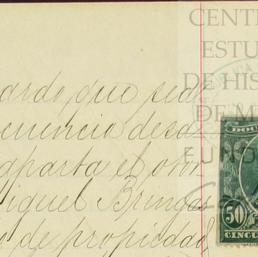 CENT
ESTU
DE HIS
DE M
FUNDO
ardo, que se
enuncia des
aparta el oto
iguel Bringas
de propiedad
50
CINCU